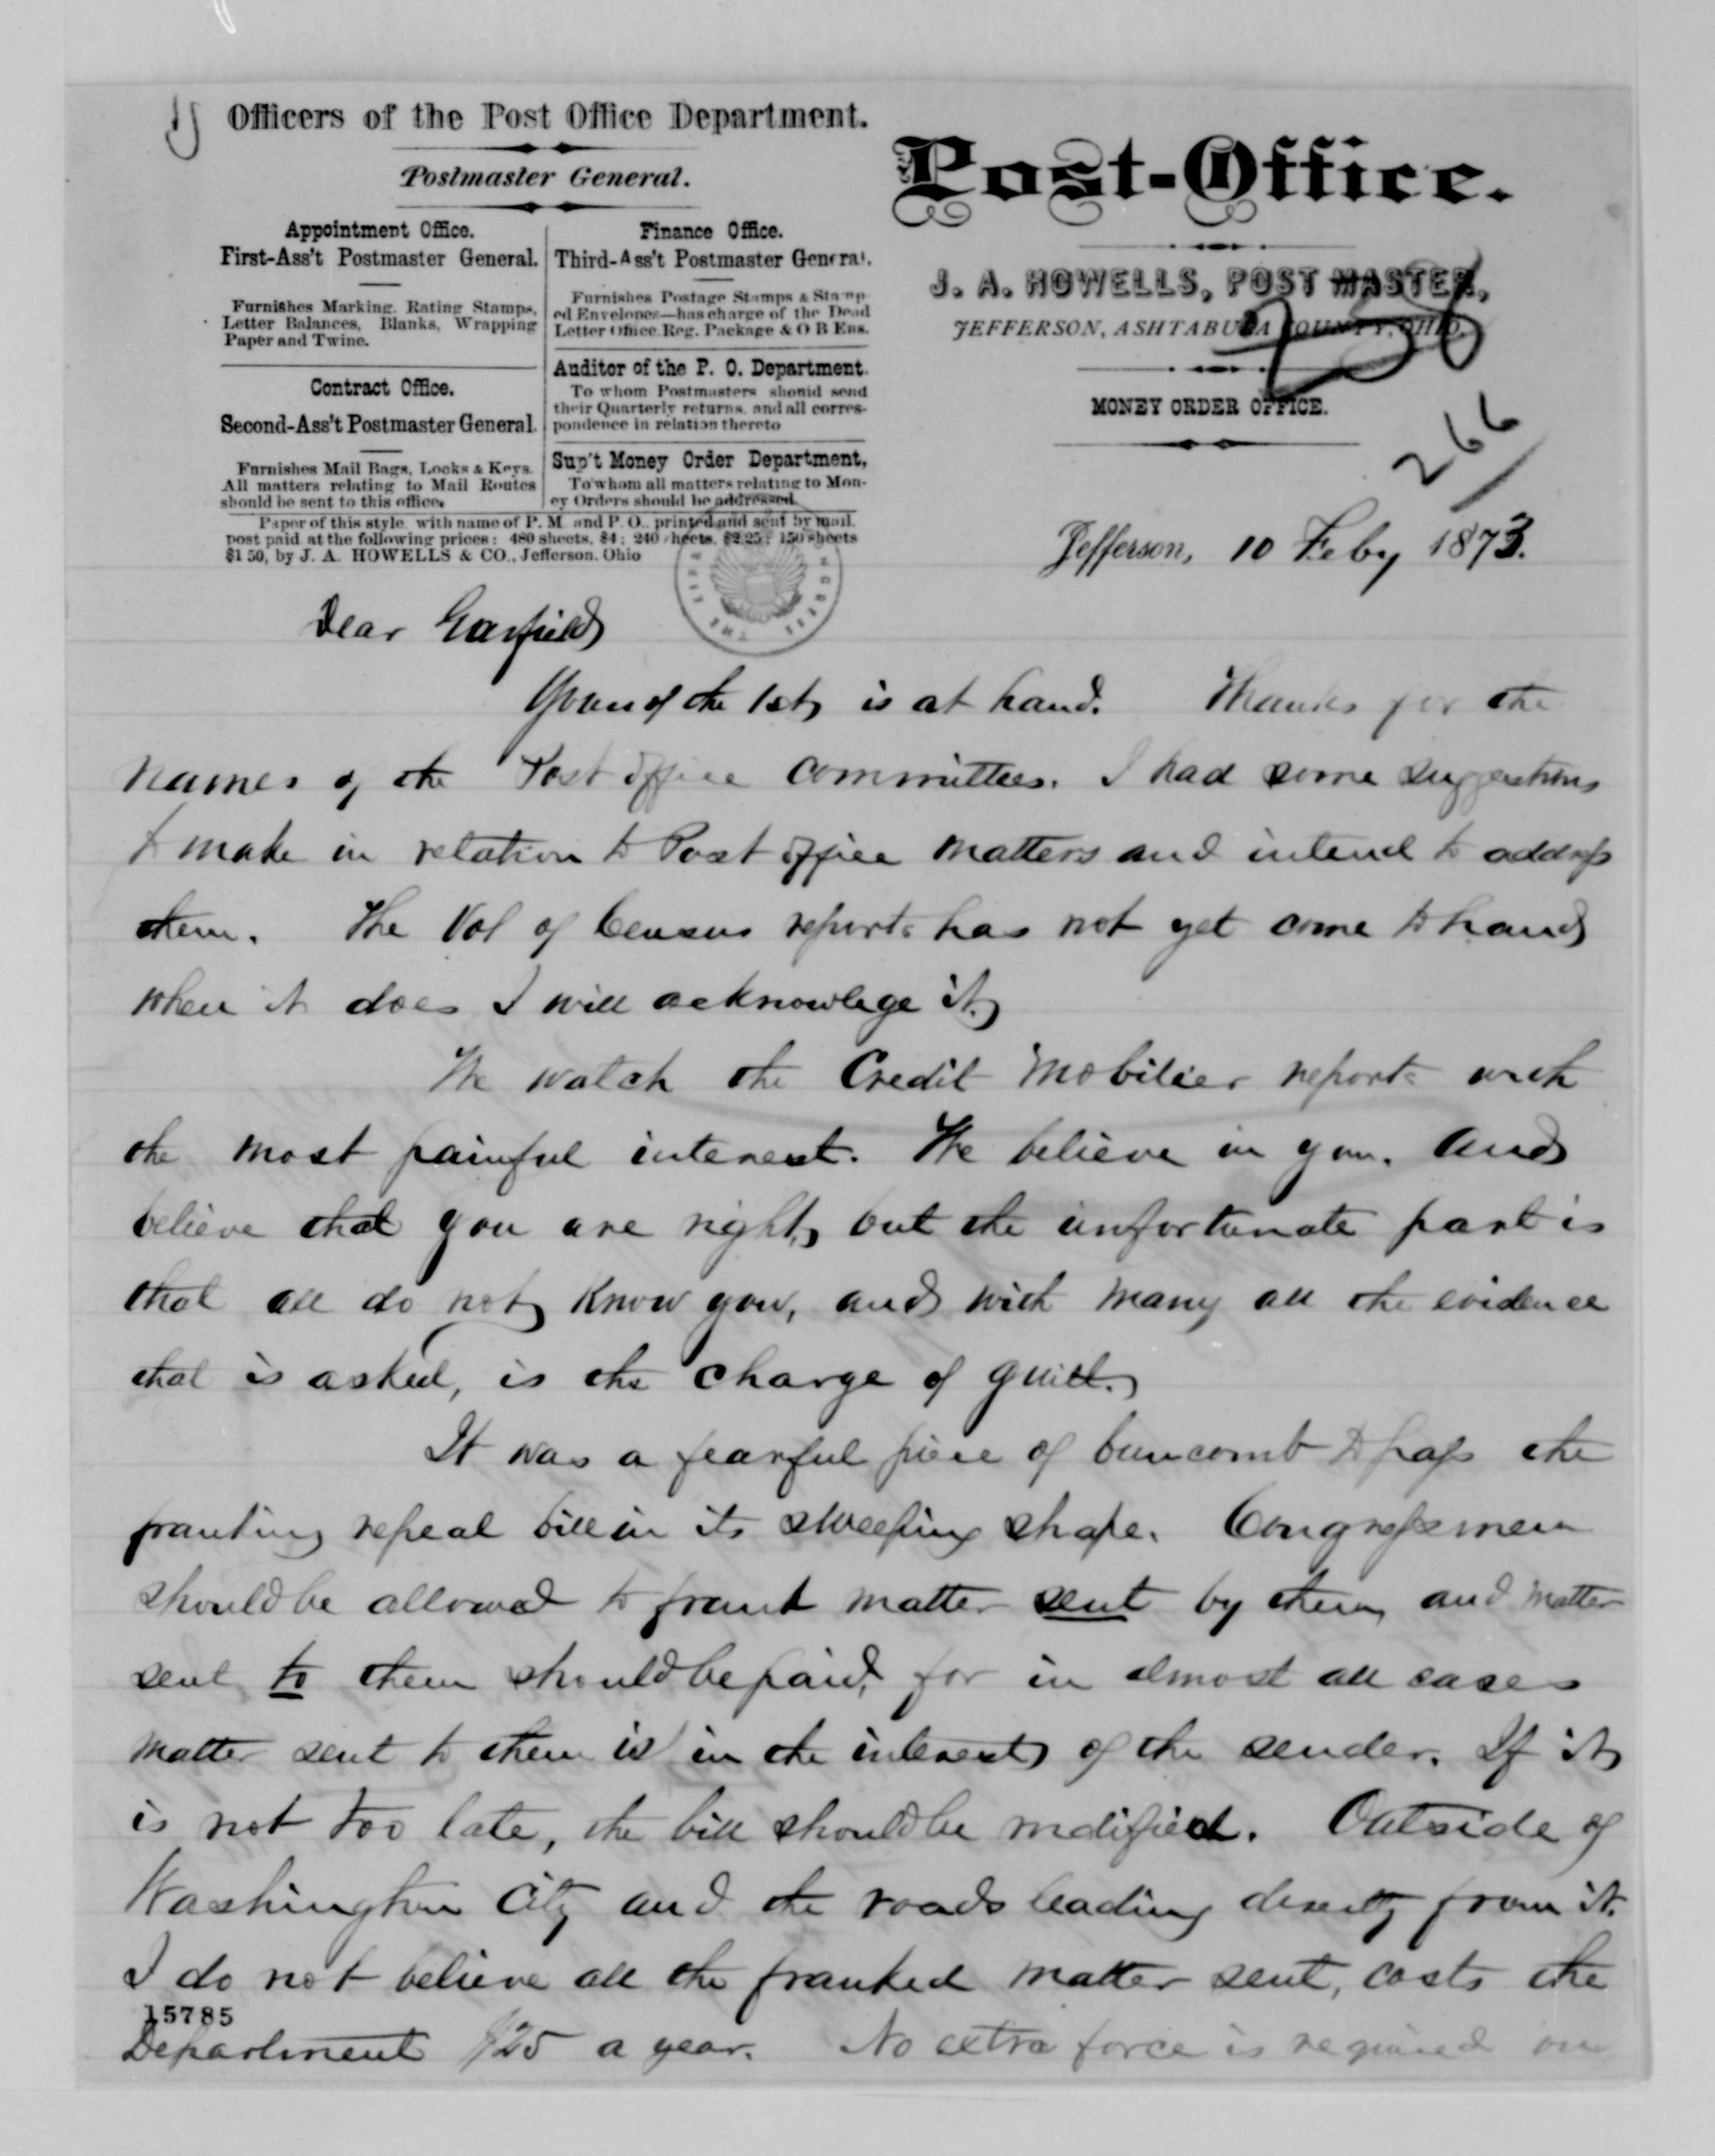 Officers of the Post Office Department.
Postmaster General.
Appointment Office.
First-Ass't Postmaster General.
Furnishes Marking, Rating Stamps,
Letter Balances, Blanks, Wrapping
Paper and Twine.
Contract Office.
Second-Ass't Postmaster General.
Furnishes Mail Bags, Locks & Keys.
All matters relating to Mail Routes
should be sent to this office.
Finance Office.
Third-Ass't Postmaster General.
Furnishes Postage Stamps & Stamp-
ed Envelopes—has charge of the Dead
Letter Office Reg. Package & O B Ens.
Auditor of the P. O. Department.
To whom Postmasters should send
their Quarterly returns, and all corres-
pondence in relation thereto
Sup't Money Order Department,
To whom all matters relating to Mon-
ey Orders should be addressed.
Paper of this style, with name of P. M. and P. O., printed and sent by mail,
post paid at the following prices: 480 sheets, $4; 240 sheets, $2.25; 150 sheets
$1 50, by J. A. HOWELLS & CO., Jefferson, Ohio
Post-Office.
J. A. HOWELLS, POST MASTER,
JEFFERSON, ASHTABULA COUNTY, OHIO.
MONEY ORDER OFFICE.
266
Jefferson, 10 Feby 1873.
Dear Garfield
Yours of the 1st, is at hand. Thanks for the
names of the Post office committees. I had some suggestions
to make in relation to Post office matters and intend to address
them. The Vol of Census reports has not yet come to hand
when it does I will acknowlege it.
We watch the Credit Mobilier reports with
the most painful interest. We believe in you. And
believe that you are right, but the unfortunate part is
that all do not know you, and with many all the evidence
that is asked, is the charge of guilt.
It was a fearful piece of buncomb to pass the
franking repeal bill in its sweeping shape. Congressmen
should be allowed to frank matter sent by them, and matter
sent to them should be paid, for in almost all cases
matter sent to them is in the interest of the sender. If it
is not too late, the bill should be modified. Outside of
Washington City and the roads leading directly from it.
I do not believe all the franked matter sent, costs the
15785
Department $25 a year. No extra force is required on